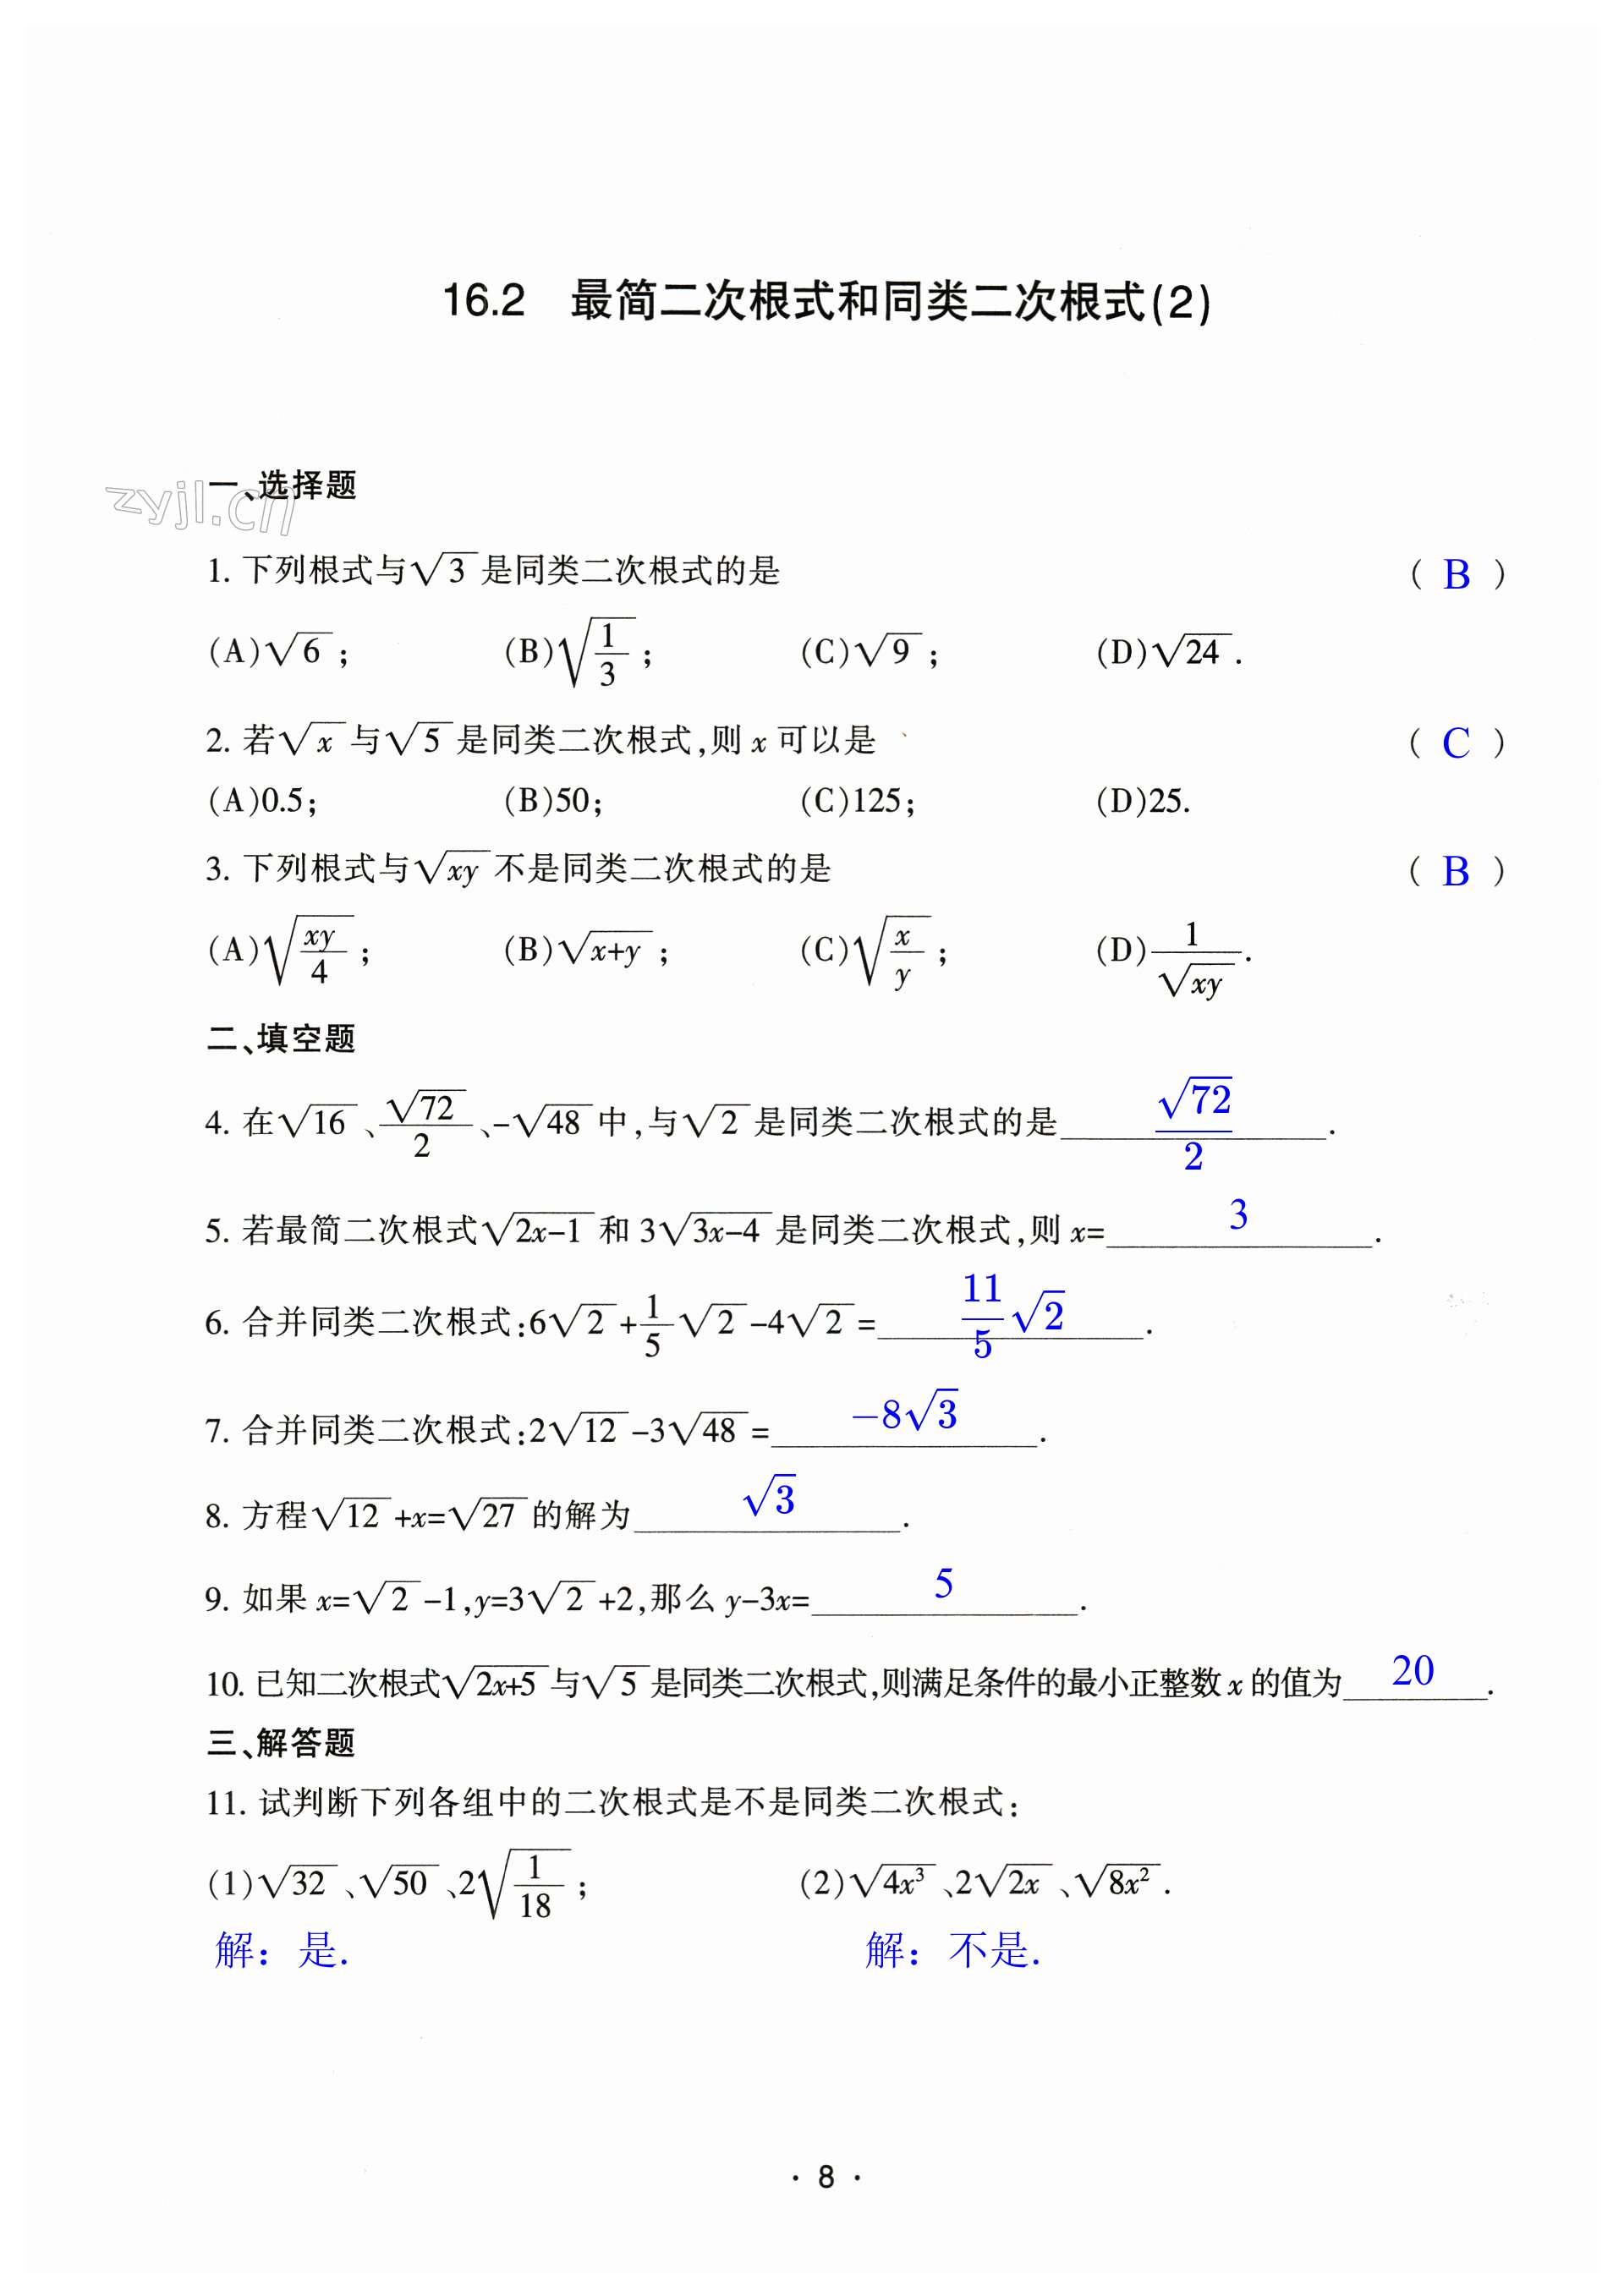 16.2 最简二次根式和同类二次根式(2)
一、选择题
zyjl.cn
1. 下列根式与√3 是同类二次根式的是 ( B )
(A)√6 ; (B)√(1/3) ; (C)√9 ; (D)√24 .
2. 若√x 与√5 是同类二次根式,则 x 可以是 ( C )
(A)0.5; (B)50; (C)125; (D)25.
3. 下列根式与√xy 不是同类二次根式的是 ( B )
(A)√(xy/4) ; (B)√(x+y) ; (C)√(x/y) ; (D)1/√xy .
二、填空题
4. 在√16 、√72/2 、-√48 中,与√2 是同类二次根式的是 √72/2 .
5. 若最简二次根式√(2x-1) 和 3√(3x-4) 是同类二次根式,则 x= 3 .
6. 合并同类二次根式:6√2 +1/5 √2 -4√2 = 11/5 √2 .
7. 合并同类二次根式:2√12 -3√48 = -8√3 .
8. 方程√12 +x=√27 的解为 √3 .
9. 如果 x=√2 -1,y=3√2 +2,那么 y-3x= 5 .
10. 已知二次根式√(2x+5) 与√5 是同类二次根式,则满足条件的最小正整数 x 的值为 20 .
三、解答题
11. 试判断下列各组中的二次根式是不是同类二次根式:
(1)√32 、√50 、2√(1/18) ; (2)√(4x³) 、2√(2x) 、√(8x²) .
解：是. 解：不是.
· 8 ·